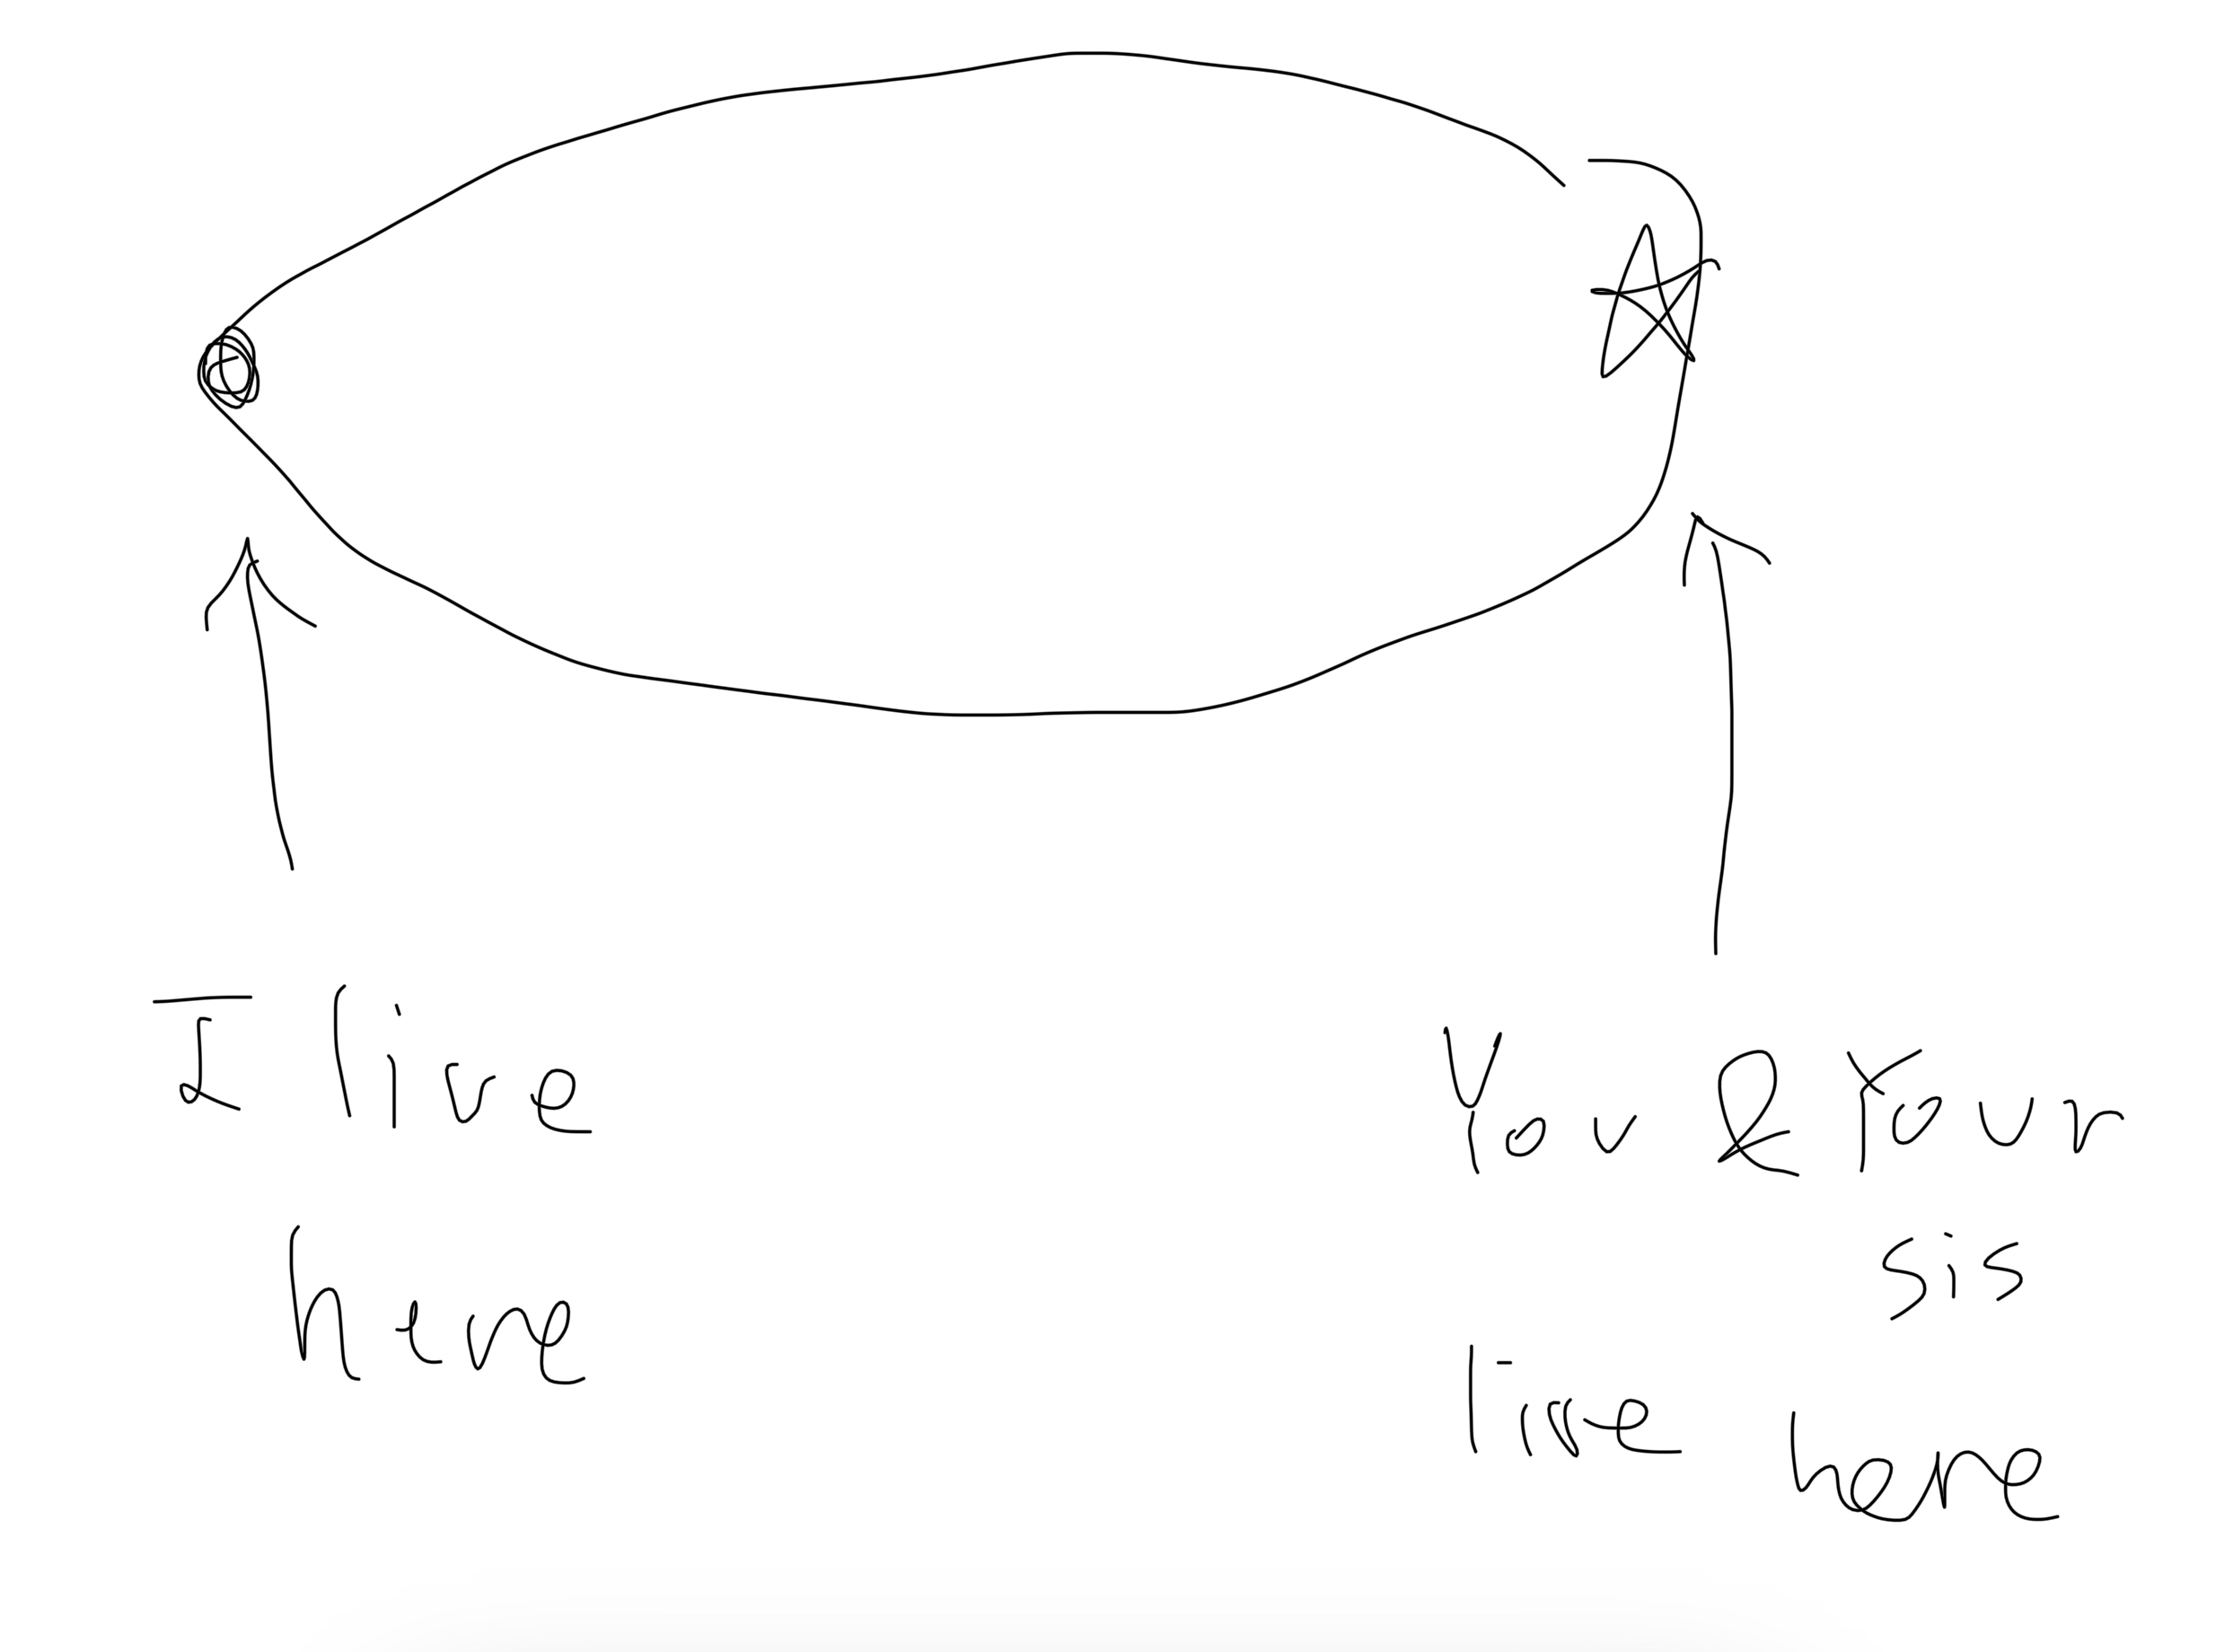 I live
here
You & Your
sis
live here